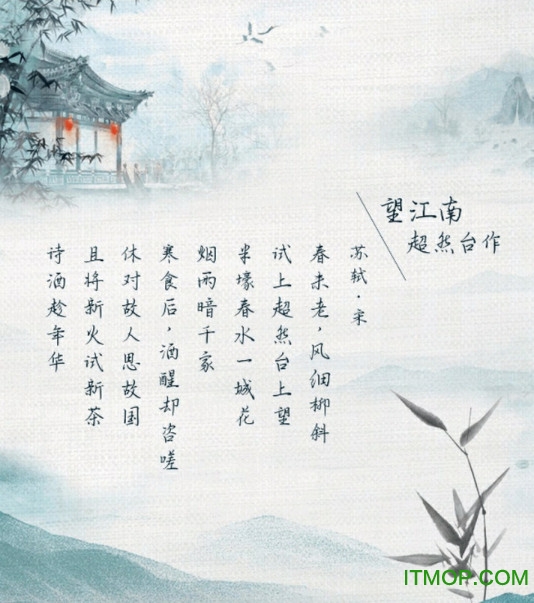 望江南
超然台作
苏轼·宋
春未老，风细柳斜
试上超然台上望
半壕春水一城花
烟雨暗千家
寒食后，酒醒却咨嗟
休对故人思故国
且将新火试新茶
诗酒趁年华
ITMOP.COM